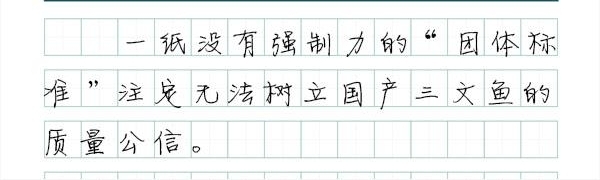 一纸没有强制力的“团体标
准”注定无法树立国产三文鱼的
质量公信。